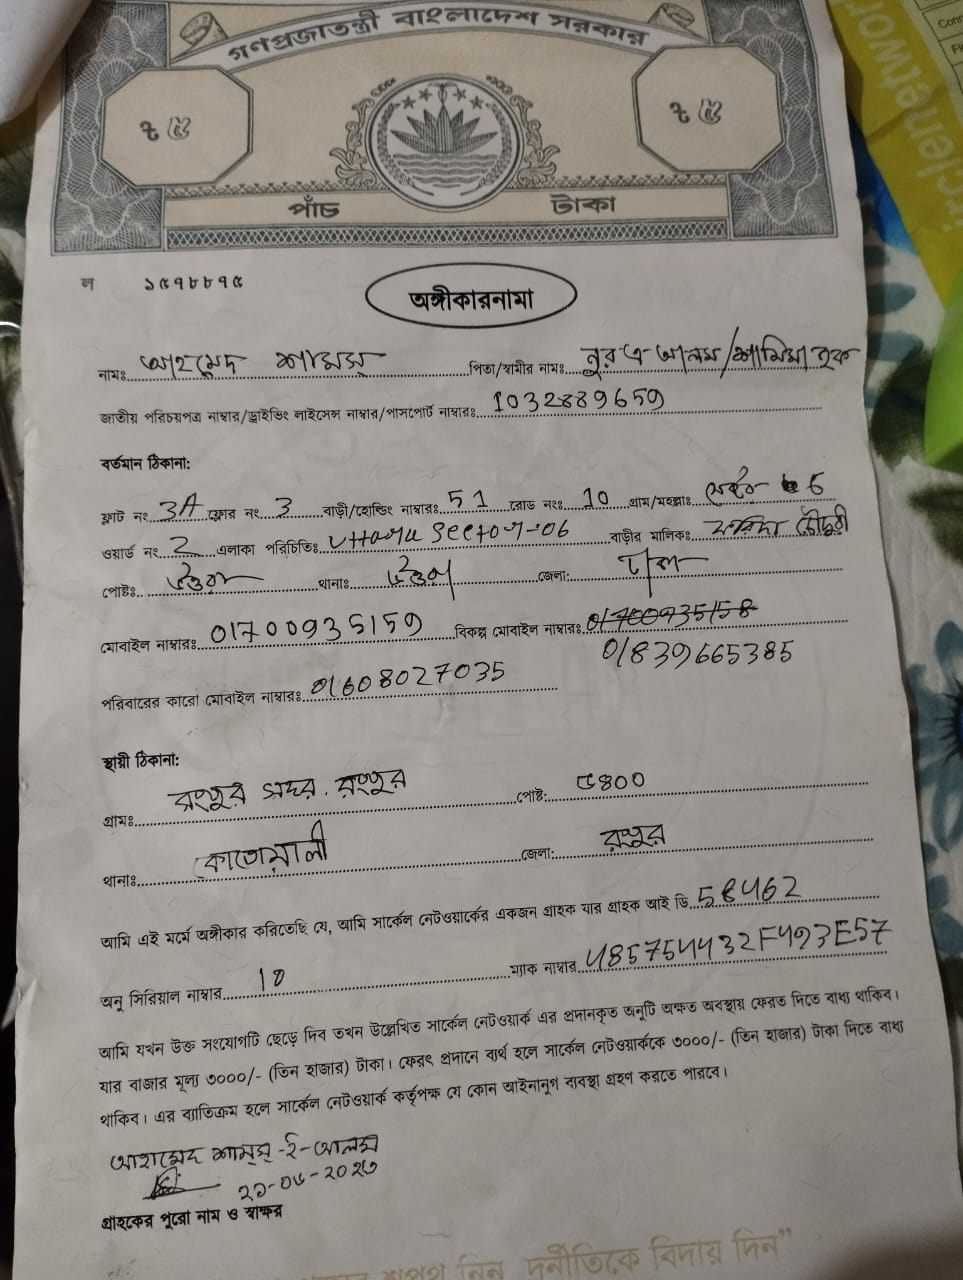 গণপ্রজাতন্ত্রী বাংলাদেশ সরকার
৳ ৫ ৳ ৫
পাঁচ টাকা
ল ১৫৭৮৮৭৫
অঙ্গীকারনামা
নামঃ আহমেদ শামস্ পিতা/স্বামীর নামঃ নুর এ আলম/শামিমা হক
জাতীয় পরিচয়পত্র নাম্বার/ড্রাইভিং লাইসেন্স নাম্বার/পাসপোর্ট নাম্বারঃ 1032889659
বর্তমান ঠিকানা:
ফ্লাট নং 3A ফ্লোর নং 3 বাড়ী/হোল্ডিং নাম্বারঃ 51 রোড নংঃ 10 গ্রাম/মহল্লাঃ সেক্টর 6
ওয়ার্ড নং 2 এলাকা পরিচিতিঃ Uttara Sector-06 বাড়ীর মালিকঃ ফরিদা চৌধুরী
পোষ্টঃ উত্তরা থানাঃ উত্তরা জেলা: ঢাকা
মোবাইল নাম্বারঃ 01700935159 বিকল্প মোবাইল নাম্বারঃ 01700935158
01839665385
পরিবারের কারো মোবাইল নাম্বারঃ 01608027035
স্থায়ী ঠিকানা:
গ্রামঃ রংপুর সদর, রংপুর পোষ্ট: 5400
থানাঃ কোতোয়ালী জেলা: রংপুর
আমি এই মর্মে অঙ্গীকার করিতেছি যে, আমি সার্কেল নেটওয়ার্কের একজন গ্রাহক যার গ্রাহক আই ডি 58462
অনু সিরিয়াল নাম্বার 10 ম্যাক নাম্বার 485754432F493E57
আমি যখন উক্ত সংযোগটি ছেড়ে দিব তখন উল্লেখিত সার্কেল নেটওয়ার্ক এর প্রদানকৃত অনুটি অক্ষত অবস্থায় ফেরত দিতে বাধ্য থাকিব।
যার বাজার মূল্য ৩০০০/- (তিন হাজার) টাকা। ফেরৎ প্রদানে ব্যর্থ হলে সার্কেল নেটওয়ার্ককে ৩০০০/- (তিন হাজার) টাকা দিতে বাধ্য
থাকিব। এর ব্যতিক্রম হলে সার্কেল নেটওয়ার্ক কর্তৃপক্ষ যে কোন আইনানুগ ব্যবস্থা গ্রহণ করতে পারবে।
আহমেদ শামস্-ই-আলম
গ্রাহকের পুরো নাম ও স্বাক্ষর
শপথ নিন দুর্নীতিকে বিদায় দিন"